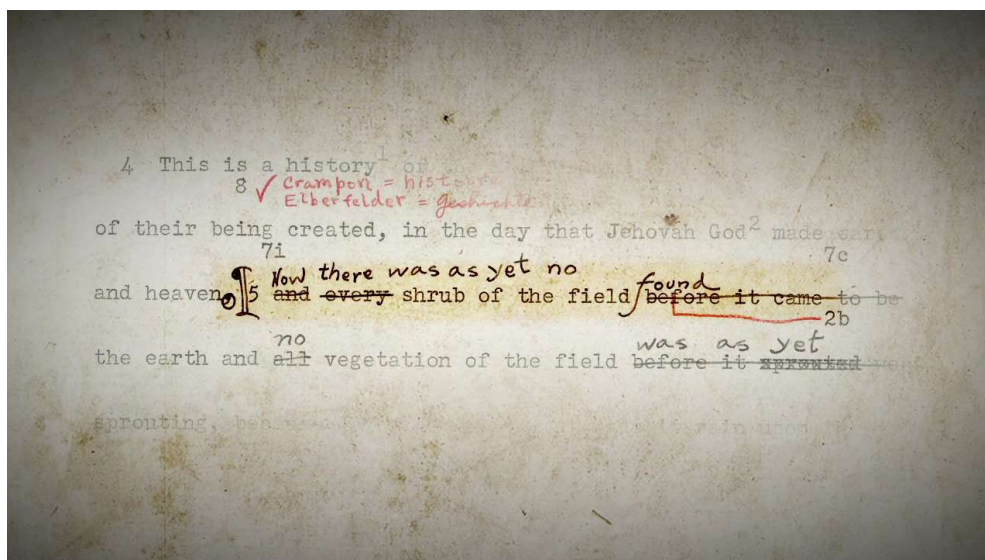 4 This is a history¹ of
8 ✓ Crampon = histoire
Elberfelder = Geschichte
of their being created, in the day that Jehovah God² made
7i 7c
Now there was as yet no found
and heaven. ¶5 and every shrub of the field before it came to be
2b
no was as yet
the earth and all vegetation of the field before it sprouted
sprouting,